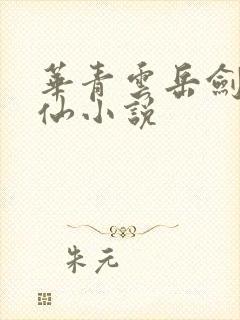 華青雲岳劍
仙小説
朱元